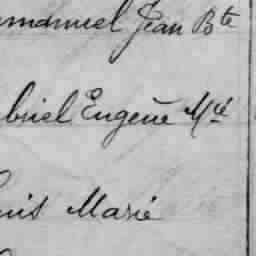 mmanuel Jean Bte
briel Eugène Md
uis Marie